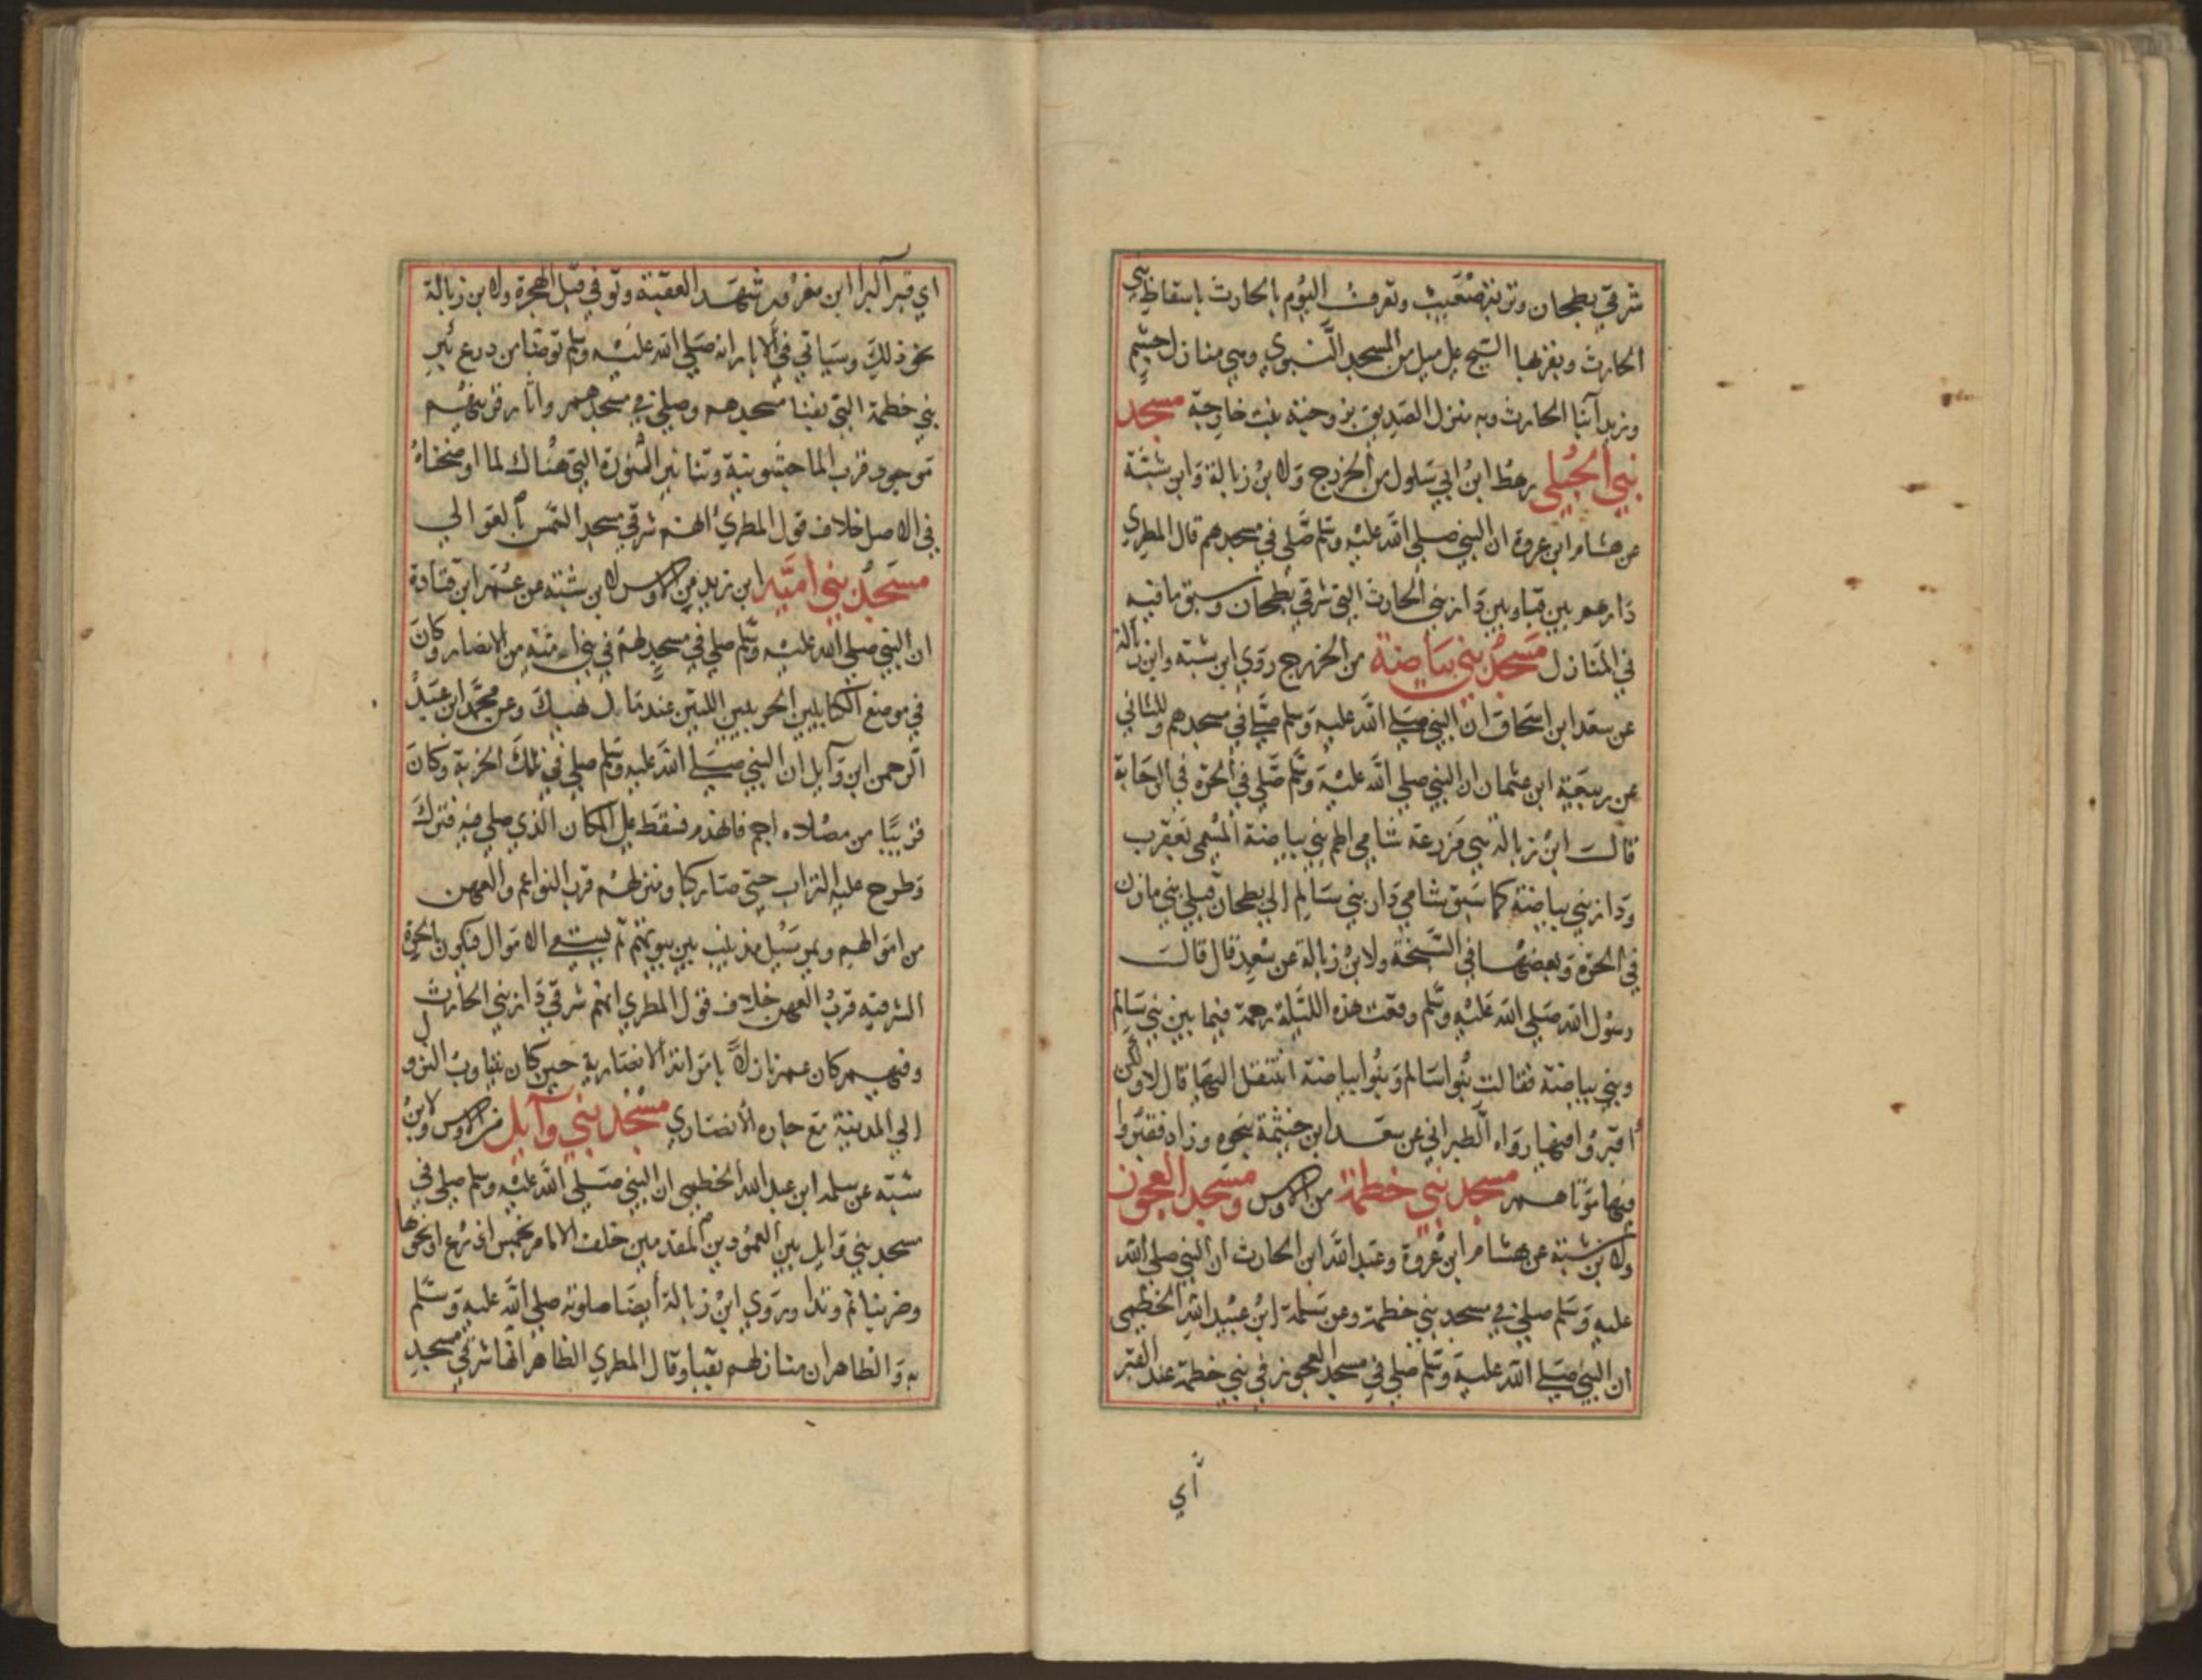 شرقي بطحان وتربة صعيب وتعرف اليوم بالحارث باسقاط بني
الحارث وبقربها السنح على ميل من المسجد النبوي وهي منازل جشم
وزيد ابنا الحارث وبه منزل الصديق بزوجته بنت خارجة مسجد
بني الحبلى رهط ابن ابي سلول من الخزرج ولابن زبالة وابن شبة
عن هشام ابن عروة ان النبي صلى الله عليه وسلم صلى في مسجدهم قال المطري
دارهم بين قبا وبين دار بني الحارث التي شرقي بطحان وسبق ما فيه
في المنازل مسجد بني بياضة من الخزرج روى ابن شبة وابن زبالة
عن سعد ابن اسحاق ان النبي صلى الله عليه وسلم صلى في مسجدهم وللثاني
عن ربيعة ابن عثمان ان النبي صلى الله عليه وسلم صلى في الحرة في الرحابة
قال ابن زبالة هي مزرعة شامي اطم بني بياضة المسمى بعقرب
ودار بني بياضة كما سبق شامي دار بني سالم الى بطحان قبلي بني مازن
في الحرة وبعضها في السبخة ولابن زبالة عن سعد قال قال
رسول الله صلى الله عليه وسلم وقعت هذه الليلة رحمة فيما بين بني سالم
وبني بياضة فقالت بنوا سالم وبنوا بياضة اننتقل اليها قال لا ولكن
اقبروا فيها رواه الطبراني عن سعد ابن خيثمة بنحوه وزاد فقبروا
فيها موتاهم مسجد بني خطمة من الاوس ومسجد العجوز
ولابن شبة عن هشام ابن عروة وعبد الله ابن الحارث ان النبي صلى الله
عليه وسلم صلى في مسجد بني خطمة وعن سلمة ابن عبيد الله الخطمي
ان النبي صلى الله عليه وسلم صلى في مسجد العجوز في بني خطمة عند القبر
أي
اي قبر البرا ابن معرور شهد العقبة وتوفي قبل الهجرة ولابن زبالة
نحو ذلك وسياتي في الابار انه صلى الله عليه وسلم توضا من درع بئر
بني خطمة التي بفنا مسجدهم وصلى في مسجدهم واثار قريتهم
موجود قرب الماجشونية وتنانير النورة التي هناك لما اوضحناه
في الاصل خلاف قول المطري انهم شرقي مسجد الشمس بالعوالي
مسجد بني امية ابن زيد من الاوس لابن شبة عن عمر ابن قتادة
ان النبي صلى الله عليه وسلم صلى في مسجد لهم في بني امية من الانصار وكان
في موضع الكبايين الخربين اللتين عند مال نهيك وعن محمد ابن عبد
الرحمن ابن وايل ان النبي صلى الله عليه وسلم صلى في تلك الخربة وكان
قريبا من مصلاه اجم فانهدم فسقط على المكان الذي صلى فيه فترك
وطرح عليه التراب حتى صار كبا ومنزلهم قرب النواعم والعهن
من اموالهم ويمر سيل مذينب بين بيوتهم ثم يسقي الاموال فيكون بالحرة
الشرقية قرب العهن خلاف قول المطري انهم شرقي دار بني الحارث
وفيهم كان عمر نازلا بامراته الانصارية حين كان يتناوب النزول
الى المدينة مع جاره الانصاري مسجد بني وآيل من الاوس لابن
شبة عن سلمة ابن عبد الله الخطمي ان النبي صلى الله عليه وسلم صلى في
مسجد بني وايل بين العمودين المقدمين خلف الامام بخمس اذرع او نحوها
وضربنا ثم وتدا وروى ابن زبالة ايضا صلوته صلى الله عليه وسلم
به والظاهر ان منازلهم بقبا وقال المطري الظاهر انها شرقي مسجد